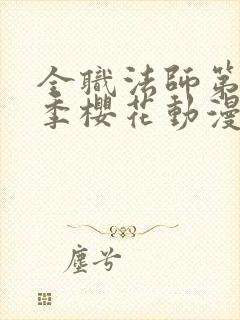 全職法師第
季櫻花動漫
塵兮